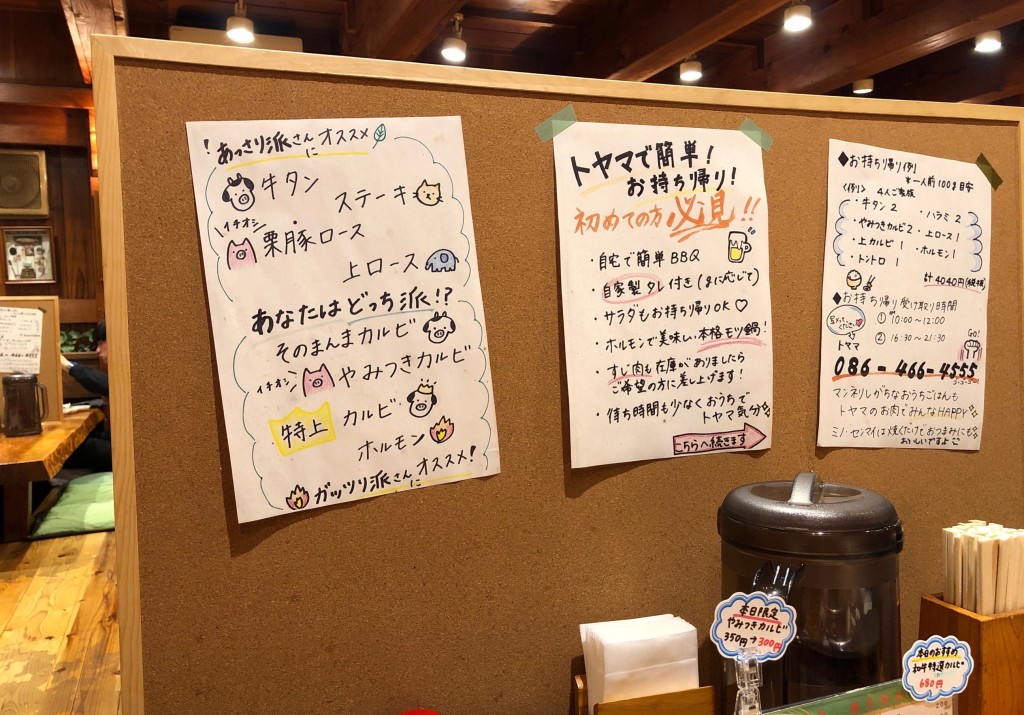 !あっさり派さんにオススメ
牛タン
ステーキ
イチオシ
栗豚ロース
上ロース
あなたはどっち派!?
そのまんまカルビ
イチオシ
やみつきカルビ
特上 カルビ
ホルモン
ガッツリ派さんにオススメ!
トヤマで簡単!
お持ち帰り!
初めての方必見!!
・自宅で簡単BBQ
・自家製タレ付き(gに応じて)
・サラダもお持ち帰りOK♡
・ホルモンで美味しい本格モツ鍋!
・すじ肉も在庫がありましたら
ご希望の方に差し上げます!
・待ち時間も少なくおうちで
トヤマ気分
こちらへ続きます
◆お持ち帰り例
*一人前100g目安
〈例〉 4人ご家族
・牛タン2 ・ハラミ2
・やみつきカルビ2 ・上ロース1
・上カルビ1 ・ホルモン1
・トントロ1
計4040円(税抜)
◆お持ち帰り受け取り時間
① 10:00〜12:00
② 16:30〜21:30
トヤマ
GO!
086-466-4555
マンネリしがちなおうちごはんも
トヤマのお肉でみんなHAPPY
ミノ・センマイは焼くだけでおつまみにも
おいしいですよ
本日限定
やみつきカルビ
350円→300円
本日のおすすめ
和牛特選カルビ
680円